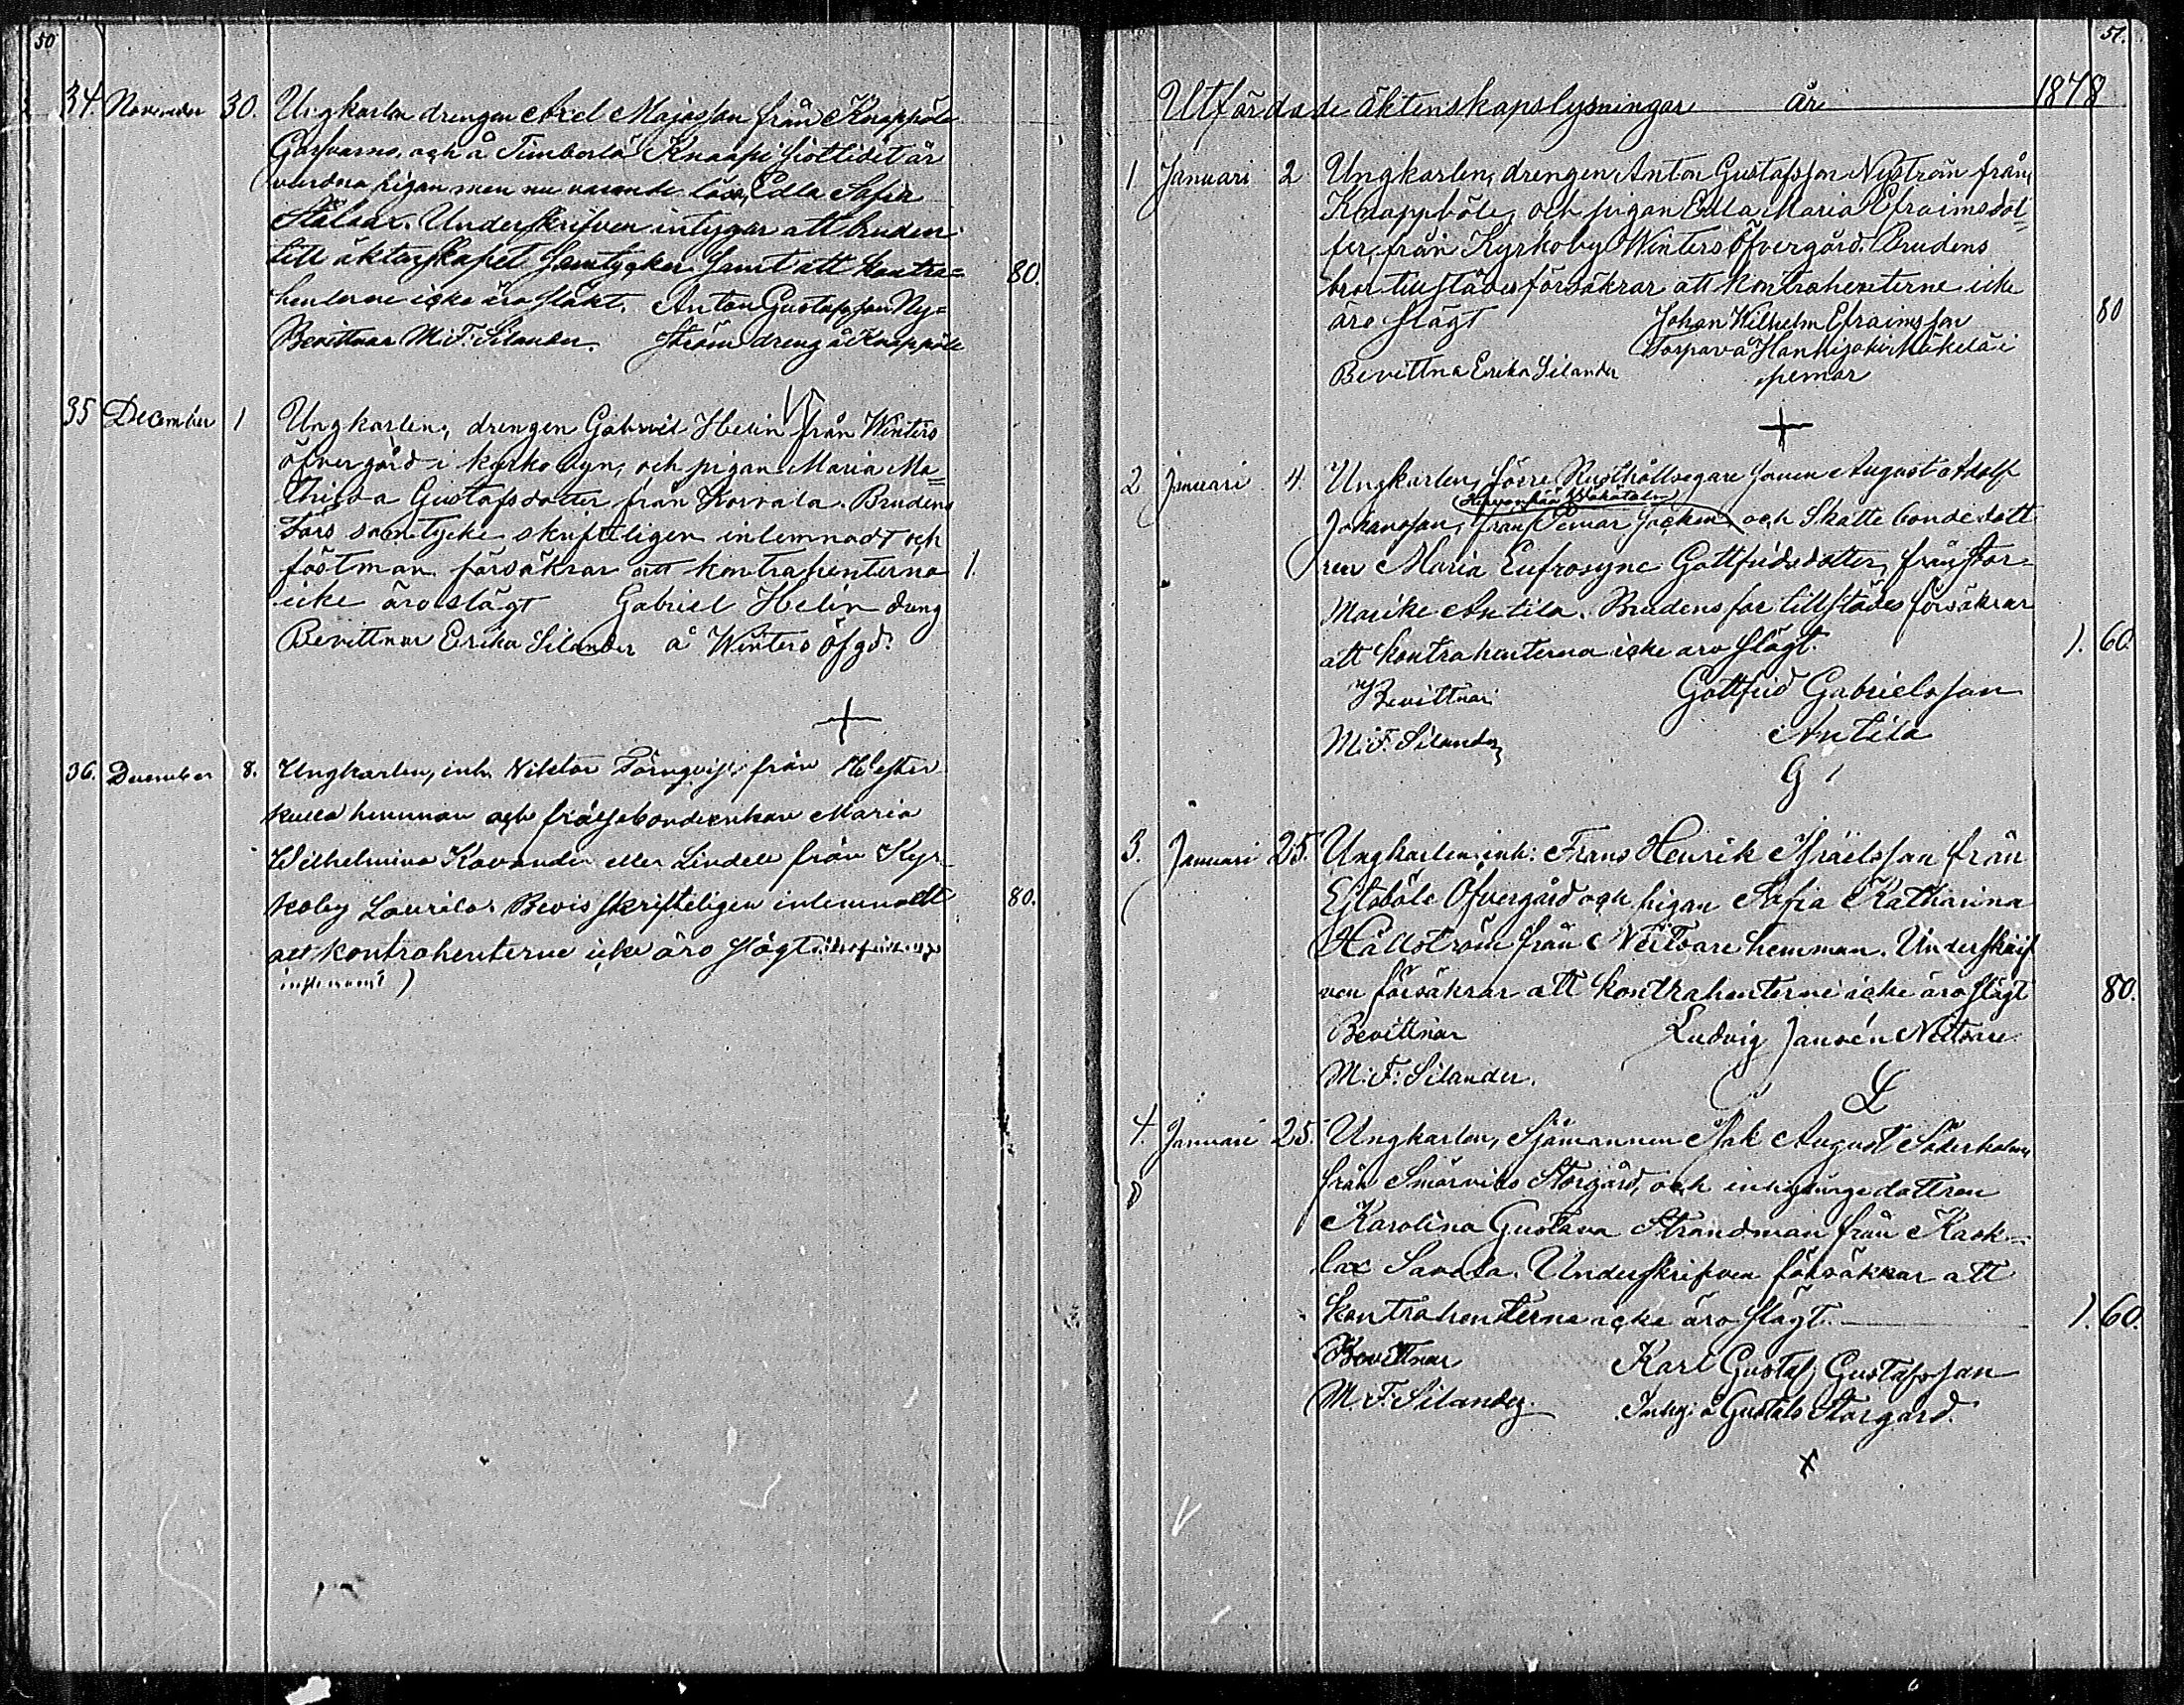 50
34. November 30. Ungkarlen drengen Axel Majasson från Knappböle
och å Timberlä Knaapi
vurdna pigan men nu varande lösa, Edla Sofia
Underskrifven intygar att bruden
till äktenskapet samtycker samt att kontra= 80.
henterne icke äro slägt. Anton Gustafsson Ny=
Bevittnar M. F. Silander. ström dreng å Knappböle
35 December 1 Ungkarlen, drengen Gabriel Helin från Winters
öfvergård i kyrkobyn, och pigan Maria Ma=
thilda Gustafsdotter från Korvala. Brudens
fars samtycke skriftligen inlemnadt och
fästman försäkrar att kontrahenterna 1.
icke äro slägt Gabriel Helin dräng
Bevittnar Erika Silander å Winters öfgd.
36. December 8. Ungkarlen, inh. Viktor Törnqvist från Wester
kulla hemman och frälsebondeenkan Maria
Wilhelmina Kavander eller Lindell från Kyr-
koby Laurila. Bevis skrifteligen inlemnadt 80.
att kontrahenterne icke äro slägt
51.
Utfärdade äktenskapslysningar år 1878
1. Januari 2 Ungkarlen, drengen Anton Gustafsson Nyström från
Knappböle, och pigan Edla Maria Efraimsdot=
ter, från Kyrkoby Winters Öfvergård. Brudens
bror tillstädes försäkrar att kontrahenterne icke
äro slägt Johan Wilhelm Efraimsson 80
Torpare å Hanhijoki Mäkelä i
Bevittna Erika Silander pemar
2 Januari 4. Ungkarlen, förre Rusthållsegare sonen August Adolf
Johansson, från Pemar socken och Skatte bondedott
ren Maria Eufrosyne Gottfridsdotter, från Stor
Marike Antila. Brudens far tillstädes försäkrar
att kontrahenterna icke äro slägt. 1. 60.
Bevittnar Gottfrid Gabrielsson
M. F. Silander Antila
G
3. Januari 25. Ungkarlen inh: Frans Henrik Israelsson från
Öfvergård och pigan Sofia Katharina
Hällström från Nettvare hemman. Underskrif
ven försäkrar att kontrahenterne icke äro slägt 80.
Bevittnar Ludvig Jansén Nettvare
M: F: Silander. L
4. Januari 25. Ungkarlen, Sjömannen Isak August Söderholm
från Smörviks Storgård, och inhysingedottren
Karolina Gustava Strandman från Kask-
lax Savala. Underskrifven försäkrar att
kontrahenterna icke äro slägt. 1. 60.
Bevittnar Karl Gustaf Gustafsson
M. F. Silander. Inhy: å Gustals Storgård.
x